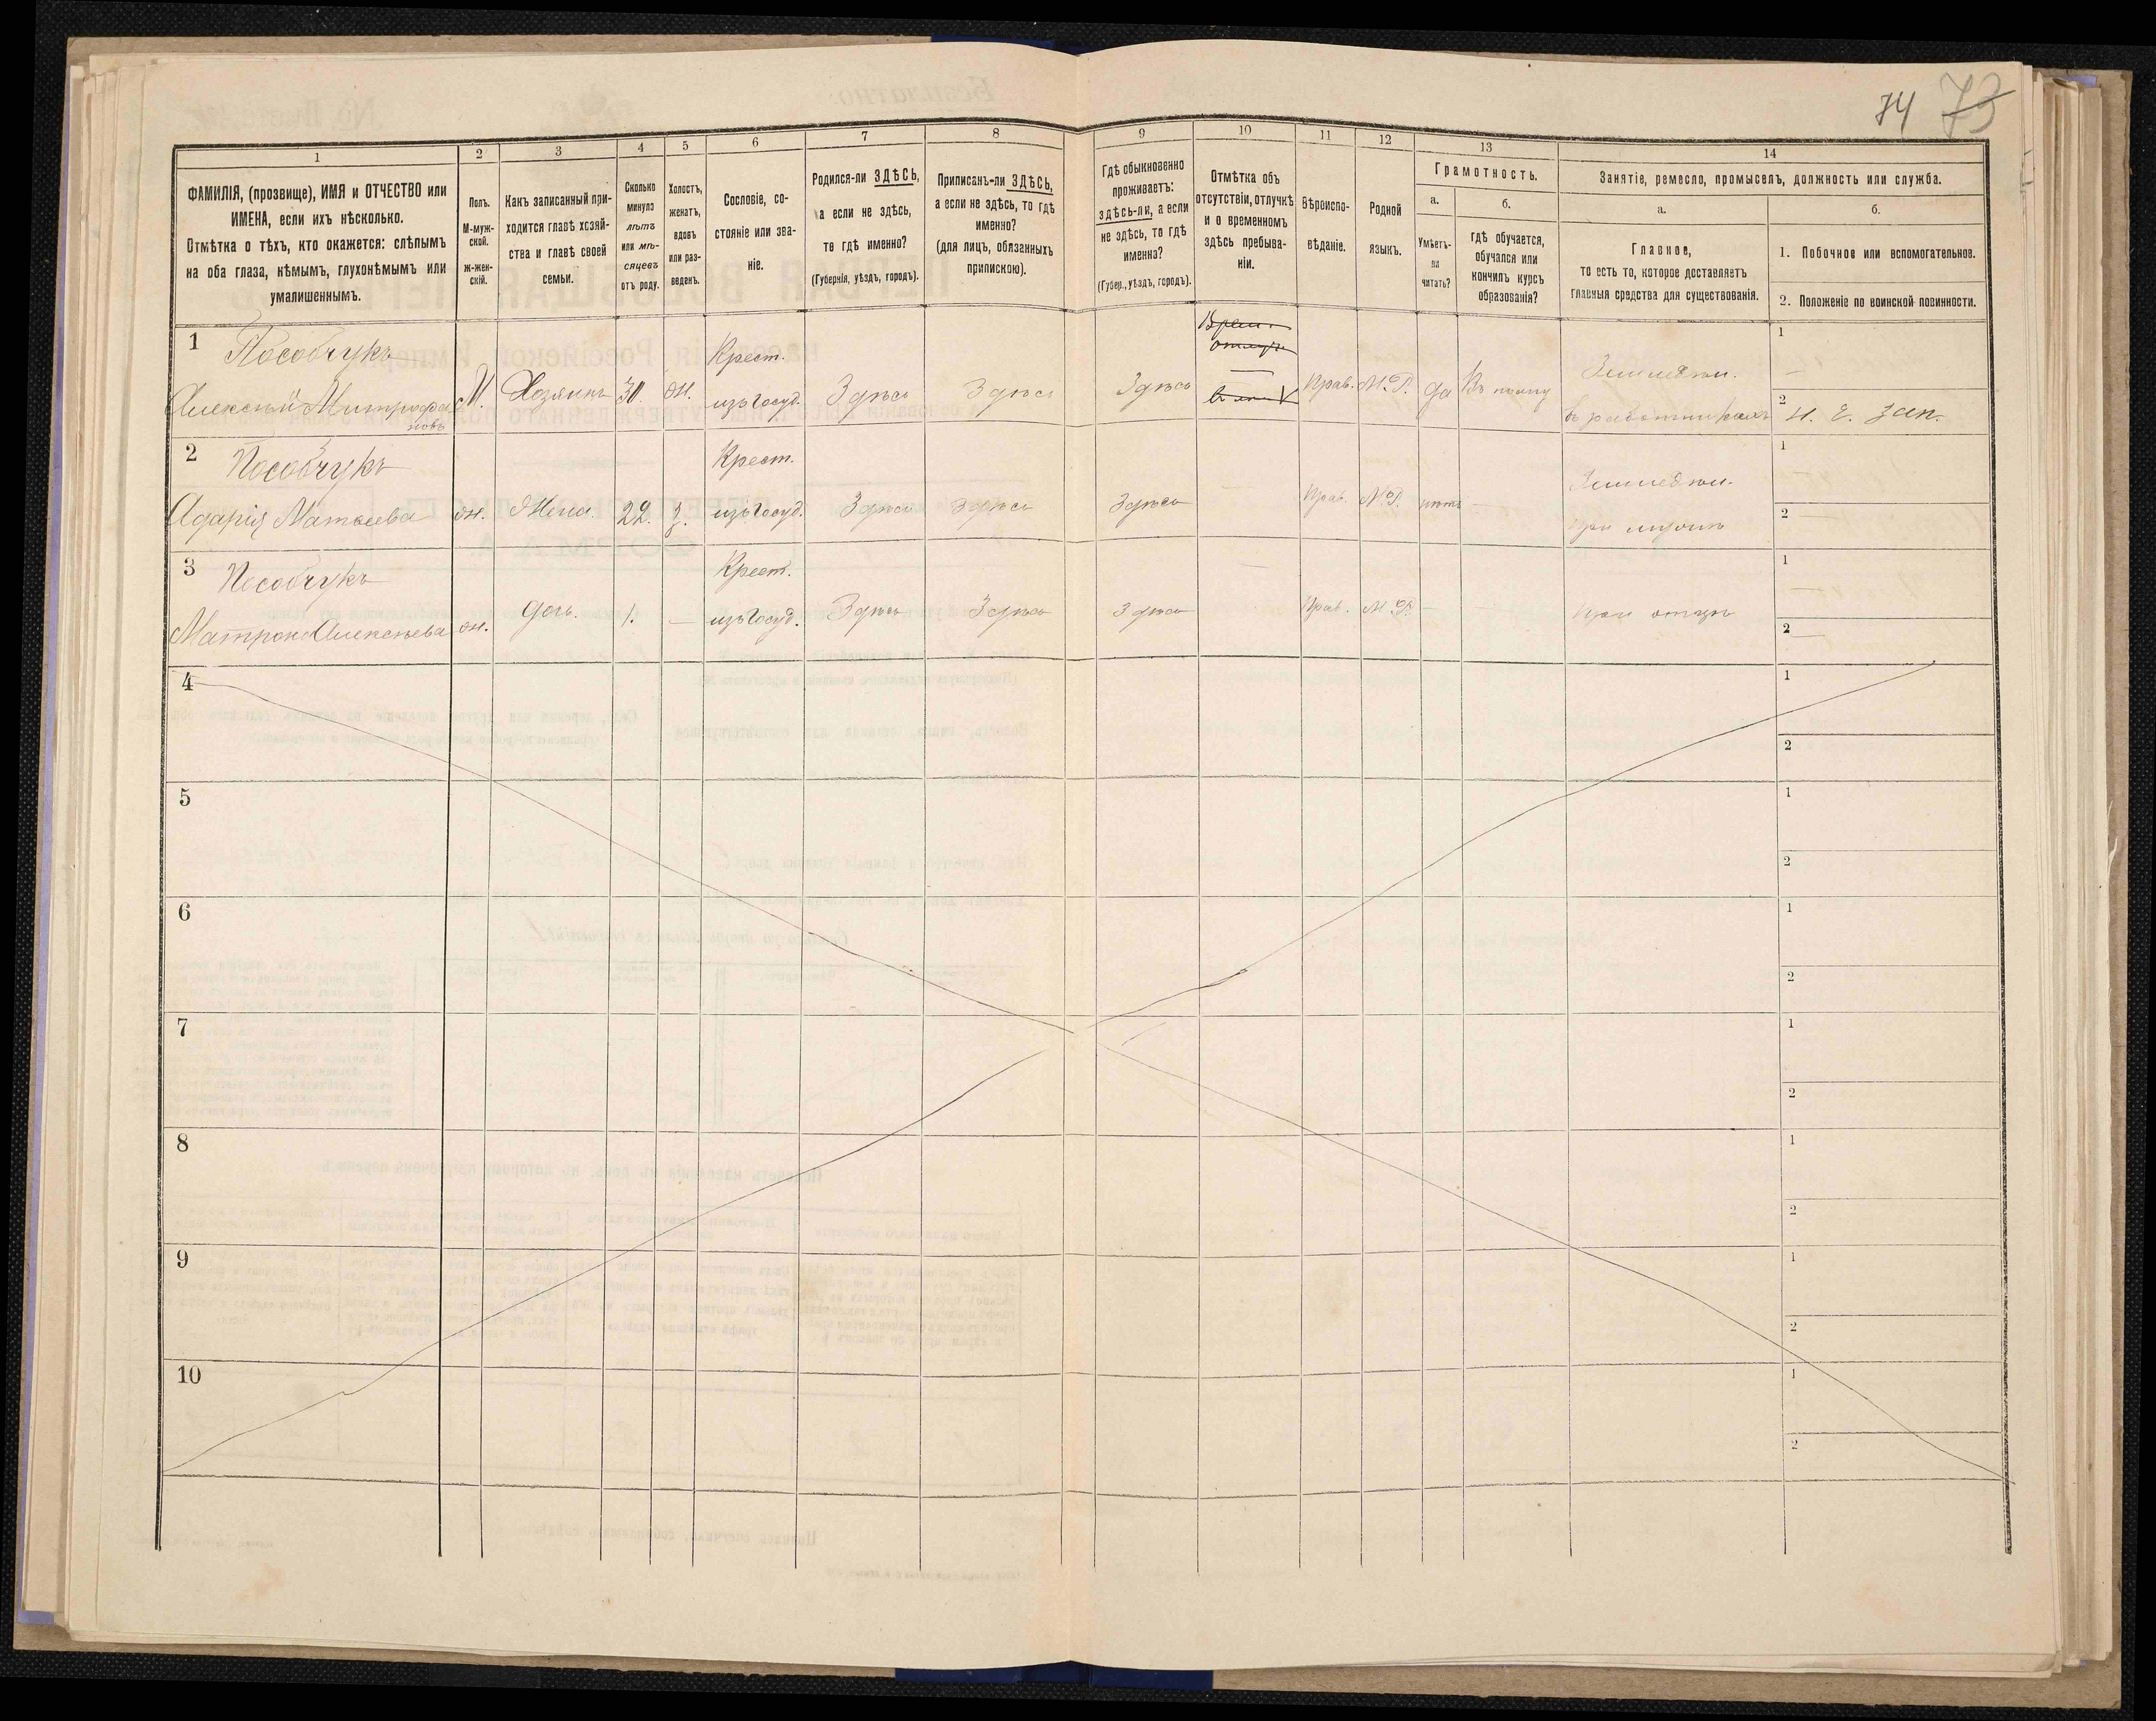 74 73
1 2 3 4 5 6 7 8 9 10 11 12 13 14
ФАМИЛІЯ, (прозвище), ИМЯ и ОТЧЕСТВО или
ИМЕНА, если ихъ нѣсколько.
Отмѣтка о тѣхъ, кто окажется: слѣпымъ
на оба глаза, нѣмымъ, глухонѣмымъ или
умалишеннымъ.
Полъ.
М-муж-
ской.
ж-жен-
скій.
Какъ записанный при-
ходится главѣ хозяй-
ства и главѣ своей
семьи.
Сколько
минуло
лѣтъ
или мѣ-
сяцевъ
отъ роду.
Холостъ,
женатъ,
вдовъ
или раз-
веденъ.
Сословіе, со-
стояніе или зва-
ніе.
Родился-ли ЗДѢСЬ,
а если не здѣсь,
то гдѣ именно?
(Губернія, уѣздъ, городъ).
Приписанъ-ли ЗДѢСЬ,
а если не здѣсь, то гдѣ
именно?
(для лицъ, обязанныхъ
припискою).
Гдѣ обыкновенно
проживаетъ:
здѣсь-ли, а если
не здѣсь, то гдѣ
именно?
(Губер., уѣздъ, городъ).
Отмѣтка объ
отсутствіи, отлучкѣ
и о временномъ
здѣсь пребыва-
ніи.
Вѣроиспо-
вѣданіе.
Родной
языкъ.
Грамотность.
а.
Умѣетъ-
ли
читать?
б.
гдѣ обучается,
обучался или
кончилъ курсъ
образованія?
Занятіе, ремесло, промыселъ, должность или служба.
а.
Главное,
то есть то, которое доставляетъ
главныя средства для существованія.
б.
1. Побочное или вспомогательное.
2. Положеніе по воинской повинности.
1 Пособчукъ Крест. Врем. 1
отлуч. Земледѣл. —
Алексѣй Митрофа М. Хозяинъ 30 ж. изъ Госуд. Здѣсь Здѣсь Здѣсь — Прав. М.Р. да Въ полку въ работникахъ 2 Н. Е. Зап.
новъ
2 Пособчукъ Крест. Земледѣл. 1
Адарія Матвѣева ж. Жена. 22. З. изъ Госуд. Здѣсь Здѣсь Здѣсь — Прав. М.Р. нѣтъ — при мужѣ 2
3 Пособчукъ Крест. — 1
Матрона Алексѣева ж. дочь. 1. — изъ Госуд. Здѣсь Здѣсь Здѣсь Прав. М.Р. — — при отцѣ 2 —
4 1
2
5 1
2
6 1
2
7 1
2
8 1
2
9 1
2
10 1
2